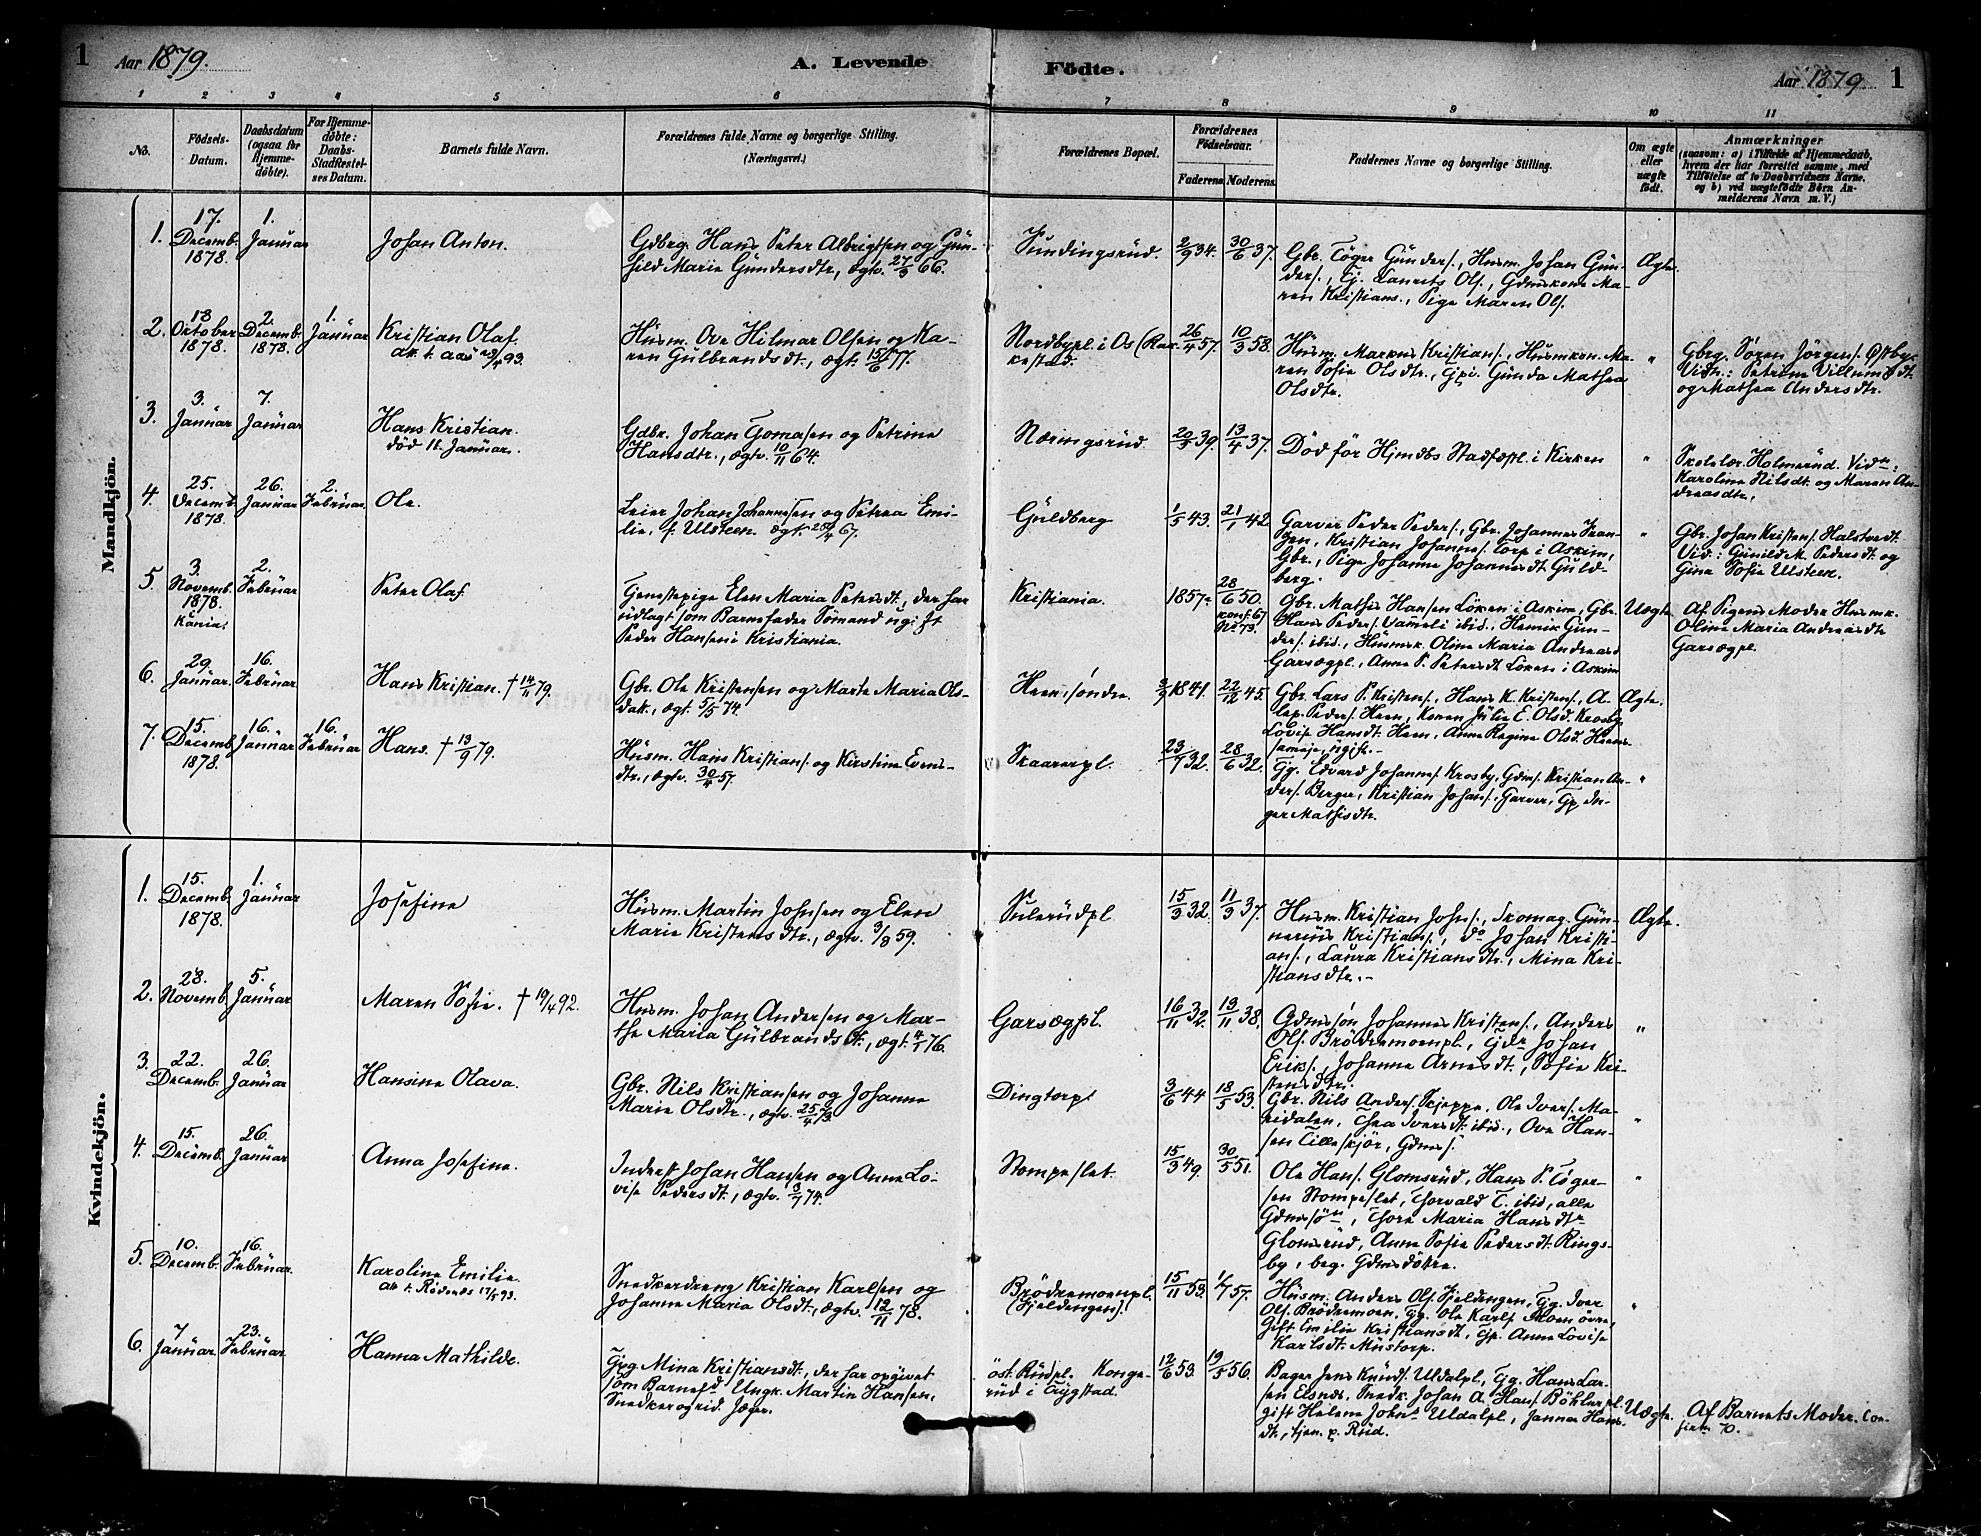 1 Aar 1879. A. Levende Födte. Aar 1879 1
1 2 3 4 5 6 7 8 9 10 11
No.
Födsels-
Datum.
Daabsdatum
(ogsaa for
Hjemme-
döbte).
For Hjemme-
döbte:
Daabs-
Stadfæstel-
ses Datum.
Barnets fulde Navn.
Forældrenes fulde Navne og borgerlige Stilling.
(Næringsvei.)
Forældrenes Bopæl.
Forældrenes
Födselsaar.
Faderens. Moderens.
Faddernes Navne og borgerlige Stilling.
Om ægte
eller
uægte
födt.
Anmærkninger
(saasom: a) i Tilfælde af Hjemmedaab,
hvem der har forrettet samme, med
Tilföielse af to Daabsvidners Navne.
og b) ved uægtefödte Börn An-
melderens Navn m. V.)
Mandkjön.
1.
17.
Decemb.
1878.
1.
Januar
Johan Anton.
Gdbrg. Hans Peter Albrigtsen og Gün-
hild Marie Gündersdtr., ægtv. 27/3 66.
Sundingsrüd.
2/9 34.
30/6 37.
Gbr. Töger Günders., Husm. Johan Gün-
ders., Gj. Laurits Ols., Gdmskone Ma-
ren Kristians., Pige Maren Ols.
Ægte.
2.
18
October
1878.
2.
Decemb.
1878.
1.
Januar
Kristian Olaf.
Hüsm. Ove Hilmar Olsen og Ka-
ren Gulbrandsdt., ægt. 15/6 77.
Nordbypl. i Os (Rak-
kestad.
26/4 57.
10/3 58.
Hüsm. Markus Kristians., Husmkon. Ma-
ren Sofie Olsdtr., Gpi. Günda Mathea
Olsdtr.
"
Gbrg. Sören Jörgens. Østby.
Vidn.: Petrine Villumsdt.
og Mathea Andersdtr.
3.
3.
Januar
7.
Januar
Hans Kristian.
död 11. Januar.
Gdbr. Johan Tomasen og Petrine
Hansdtr., ægtv. 10/11 64.
Næringsrüd.
20/5 39.
13/4 37.
Död för Hjmdbs Stadfæst. i Kirken
"
Skolelær. Holmsrüd. Vidn:
Karoline Nilsdt. og Maren An-
dreasdtr.
4.
25.
Decemb.
1878.
26.
Januar
2.
Februar
Ole.
Leier Johan Johannesen og Petrea Emi-
lie, f. Ulsteen. ægt. 28/4 67.
Güldberg
1/5 43.
21/1 42
Garver Peder Peders., Gbr. Johannes Fran-
tzen, Kristian Johanns. Torp i Askim,
Gbr., Pige Johanne Johannesdt. Guld-
berg.
"
Gbr. Johan Kristens. Halstvedt
Vid.: Gunild K. Pedersdt. og
Gina Sofie Ulsteen.
5
3.
Novemb.
1878.
Kania.
2.
Februar
Peter Olaf
Tjenestepige Elen Maria Petersdt., der har
udlagt som Barnefader Sømand ugift
Peder Hansen i Kristiania.
Kristiania.
1857.
28/6 50.
konf. 67
No 73.
Gbr. Mathis Hansen Löken i Askim, Gbr.
Hans Peders. Vameli ibid., Henrik Gun-
ders. ibid., Hüsmk. Oline Maria Andreasd
Garsegpl., Anne P. Petersdt. Löken i Askim
Uægte
Af Pigens Moder Husmk.
Oline Maria Andreasdtr
Garsegpl.
6.
29.
Januar.
16.
Februar
Hans Kristian. † 14/11 79.
Gbr. Ole Kristensen og Marte Maria Ols-
datt., ægt. 5/5 74.
Heen søndre
3/9 1841.
22/12 45.
Gbr. Lars P. Kristens., Hans K. Kristens., A.
Peders. Heen, Konen Julie E. Olsd. Krosby,
Lovise Hansdt. Heen, Anne Regine Olsd. Heens-
Ægte.
7.
15.
Decemb.
1878.
16.
Januar
16.
Februar
Hans. † 13/9 79.
Hüsm. Hans Kristians. og Kirstine Evens-
dtr., ægtv. 30/4 57.
Skaarerpl.
23/7 32.
28/6 32.
Gg. Edvard Johannes. Krosby, Gdms. Kristian An-
ders. Berger, Kristian Johans. Garver, Gp. In-
ger Mathisdtr.
"
Kvindekjön.
1.
15.
Decemb.
1878.
1.
Januar
Josefine
Hüsm. Martin Johnsen og Elen
Marie Kristensdtr., ægtv. 3/8 59.
Sulerüdpl
15/3 32.
11/3 37.
Husm. Kristian Johs., Skomag. Gün-
nerius Kristians., do Johan Kristi-
ans., Laura Kristiansdtr., Mina Kri-
stiansdtr.
Ægte.
2.
28.
Novemb.
5.
Januar
Maren Sofie. † 19/4 92.
Husm. Johan Andersen og Mar-
the Maria Gülbrandsdt., ægt. 76.
Garsegpl.
16/11 32.
19/11 38.
Gdmssøn Johannes Kristens., Anders
Ols. Brödremoenpl., Gdr Johan
Eriks., Johanne Arnesdt., Sofie Kri-
stensdtr.
"
3.
22.
Decemb.
26.
Januar
Hansine Olava.
Gbr. Nils Kristiansen og Johanne
Marie Olsdtr., ægtv. 25/4 73.
Dingtorp
3/6 44
18/5 53.
Gbr. Nils Anders. Skjeppe, Ole Ivers. Ma-
ridalen, Thea Iversdt. ibid., Ove Han-
sen Tilleskjör, Gdmss.
"
4.
15.
Decemb.
26.
Januar
Anna Josefine.
Inderst Johan Hansen og Anne Lo-
vise Pedersdt., ægtv. 3/7 74.
Stompeslet.
15/3 49.
30/5 51.
Ole Hans. Glomsrüd, Hans P. Töger-
sen Stompeslet, Thorvald T. ibid., alle
Gdmssön, Thora Maria Hansdtr
Glomsrüd, Anne Sofie Pedersdt. Rings-
by, beg. Gdmsdötre.
"
5.
10.
Decemb.
16.
Februar.
Karoline Emilie.
att. t. Rödenæs 17/5 93.
Snedkerdreng Kristian Karlsen og
Johanne Maria Olsdt., ægtv. 12/11 78.
Brödremoenpl.
(Fjeldengen).
15/11 53.
1/7 57.
Hüsm. Anders Ols. Fjeldengen, Gg. Iver
Ols. Brödremoen, Gg. Ole Karls. Moen övre,
Gift Emilie Kristiansdt., Gp. Anne Lovise
Karlsdt. Müstorp.
"
6.
7
Januar.
23.
Februar
Hanna Mathilde.
Gpg. Mina Kristiansdt., der har opgivet
som Barnefd. Ungk. Martin Hansen,
Snedker og rid. Jæger.
öst. Rüdpl. Konge-
rüd i Trygstad.
12/6 53.
19/5 56.
Bager Jens Knüds. Uldalpl., Gg. Hans Lar-
sen Elsnes, Snedk. Johan A. Hans. Böhlerpl.
gift Helene Johns. Uldalpl., Janna Hans-
dt., tjen. p. Rüd.
Uægte.
Af Barnets Moder. Con-
firm. 70.